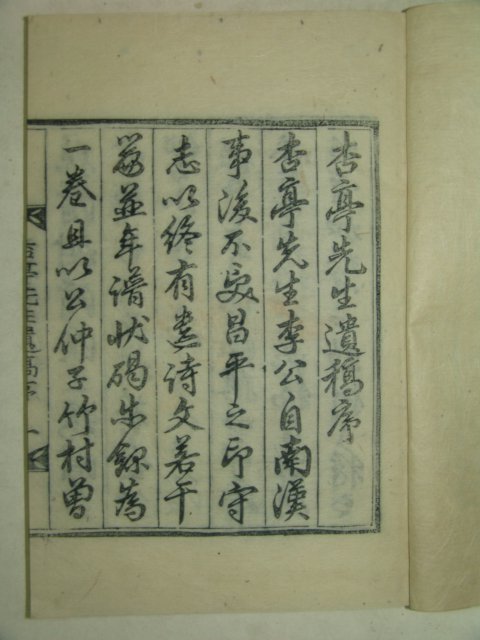 杏亭先生遺稿序
杏亭先生李公自南漢
事後不受昌平之印守
志以終有遺詩文若干
篇並年譜狀碣步錄為
一卷且以公仲子竹村曾
杏亭先生遺稿序 一